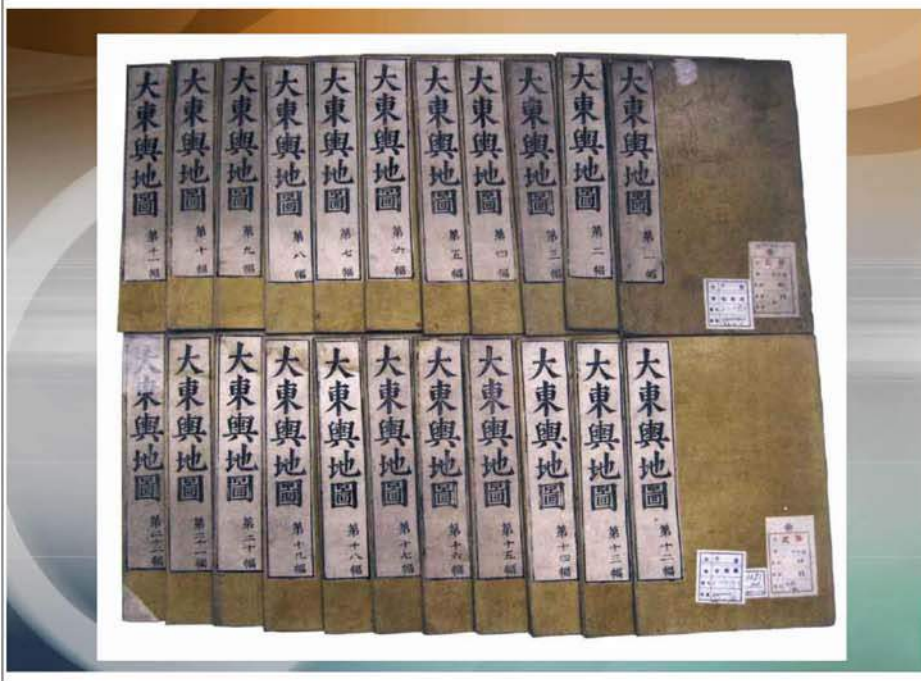 大東輿地圖 第一幅
大東輿地圖 第二幅
大東輿地圖 第三幅
大東輿地圖 第四幅
大東輿地圖 第五幅
大東輿地圖 第六幅
大東輿地圖 第七幅
大東輿地圖 第八幅
大東輿地圖 第九幅
大東輿地圖 第十幅
大東輿地圖 第十一幅
大東輿地圖 第十二幅
大東輿地圖 第十三幅
大東輿地圖 第十四幅
大東輿地圖 第十五幅
大東輿地圖 第十六幅
大東輿地圖 第十七幅
大東輿地圖 第十八幅
大東輿地圖 第十九幅
大東輿地圖 第二十幅
大東輿地圖 第二十一幅
大東輿地圖 第二十二幅